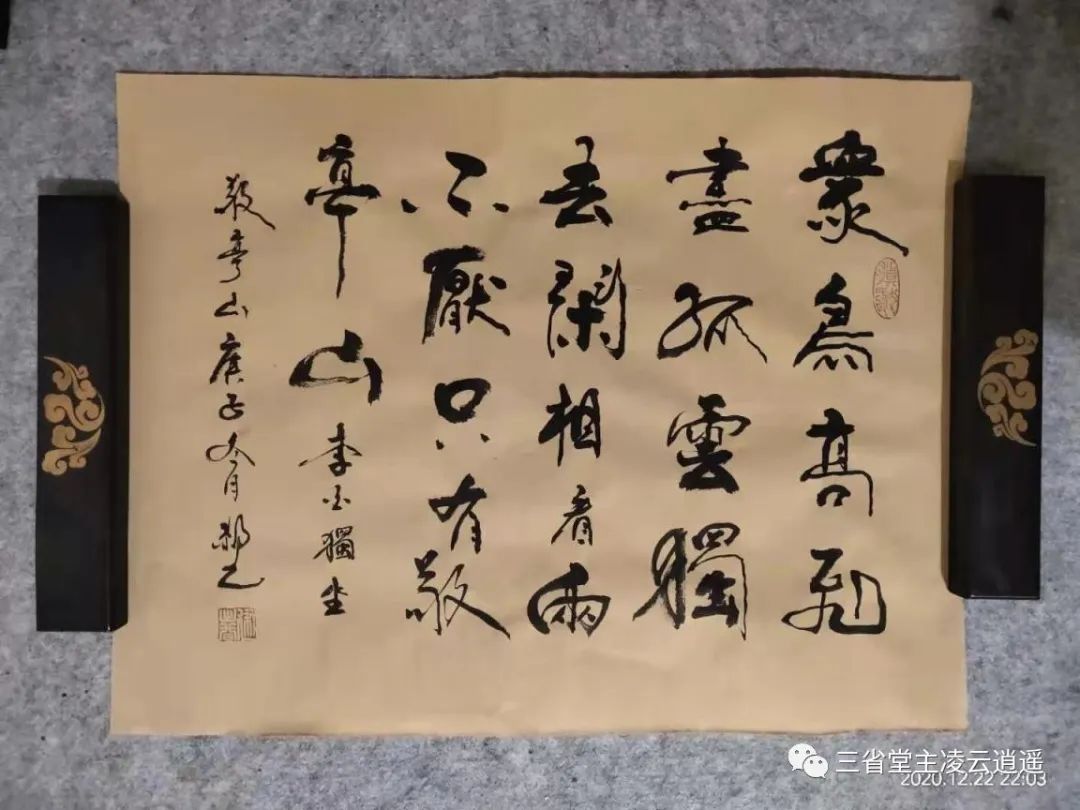 衆鳥高飛
盡孤雲獨
去閑相看兩
不厭只有敬
亭山李白獨坐
敬亭山庚子冬月
三省堂主凌云逍遥
2020.12.22 22:03